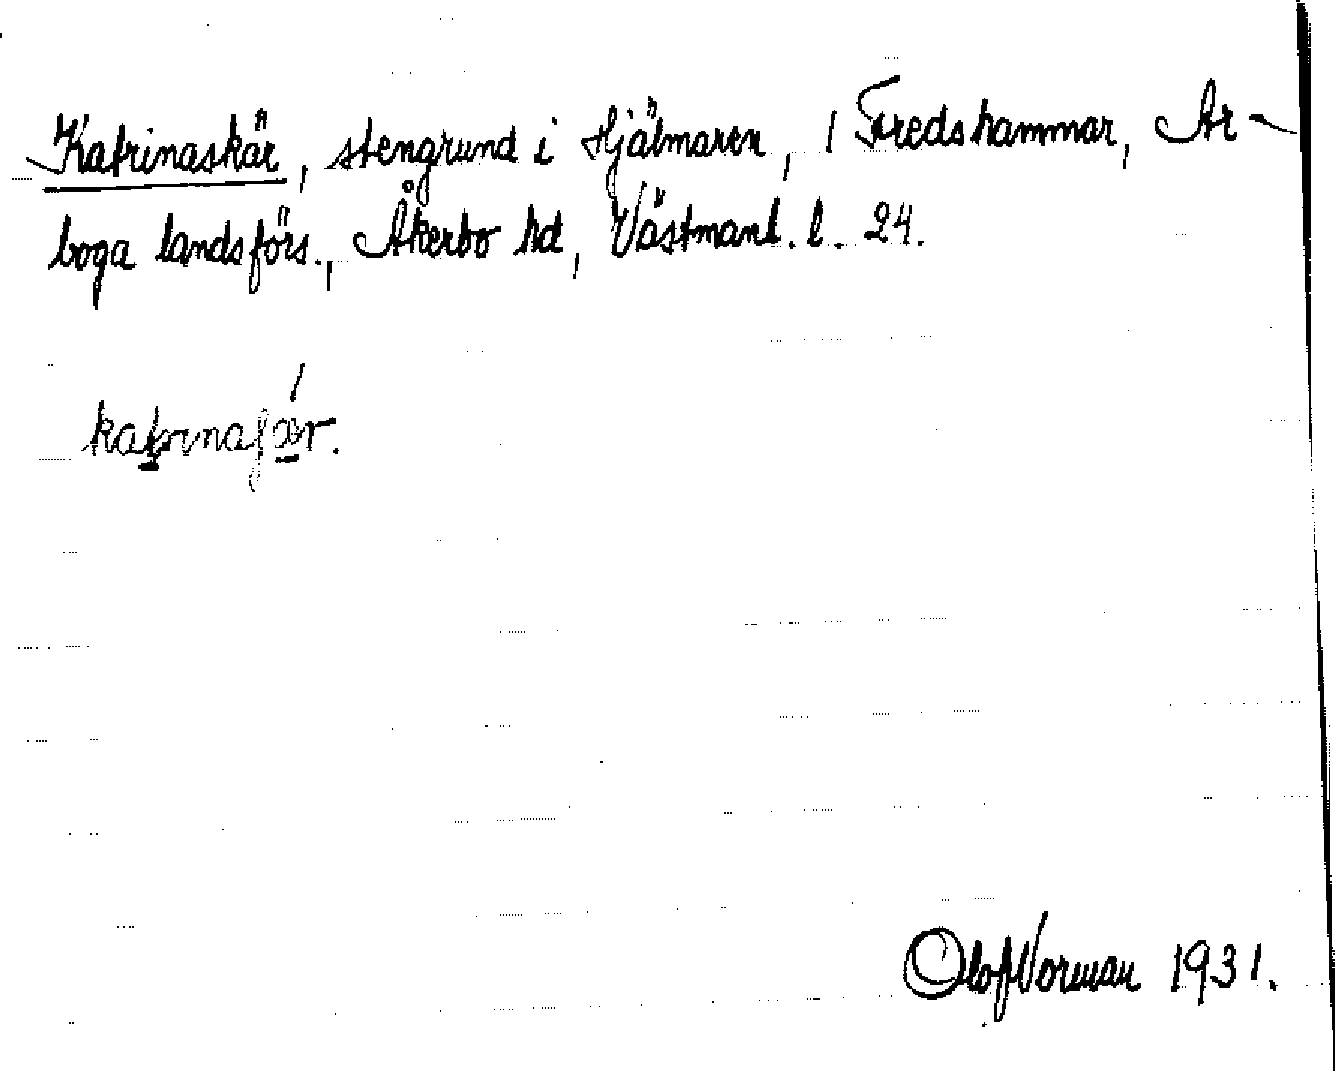 Katrinaskär, stengrund i Hjälmaren, 1 Fredshammar, Ar-
boga landsförs., Åkerbo hd, Västmanl. l. 24.
Olof Norman 1931.